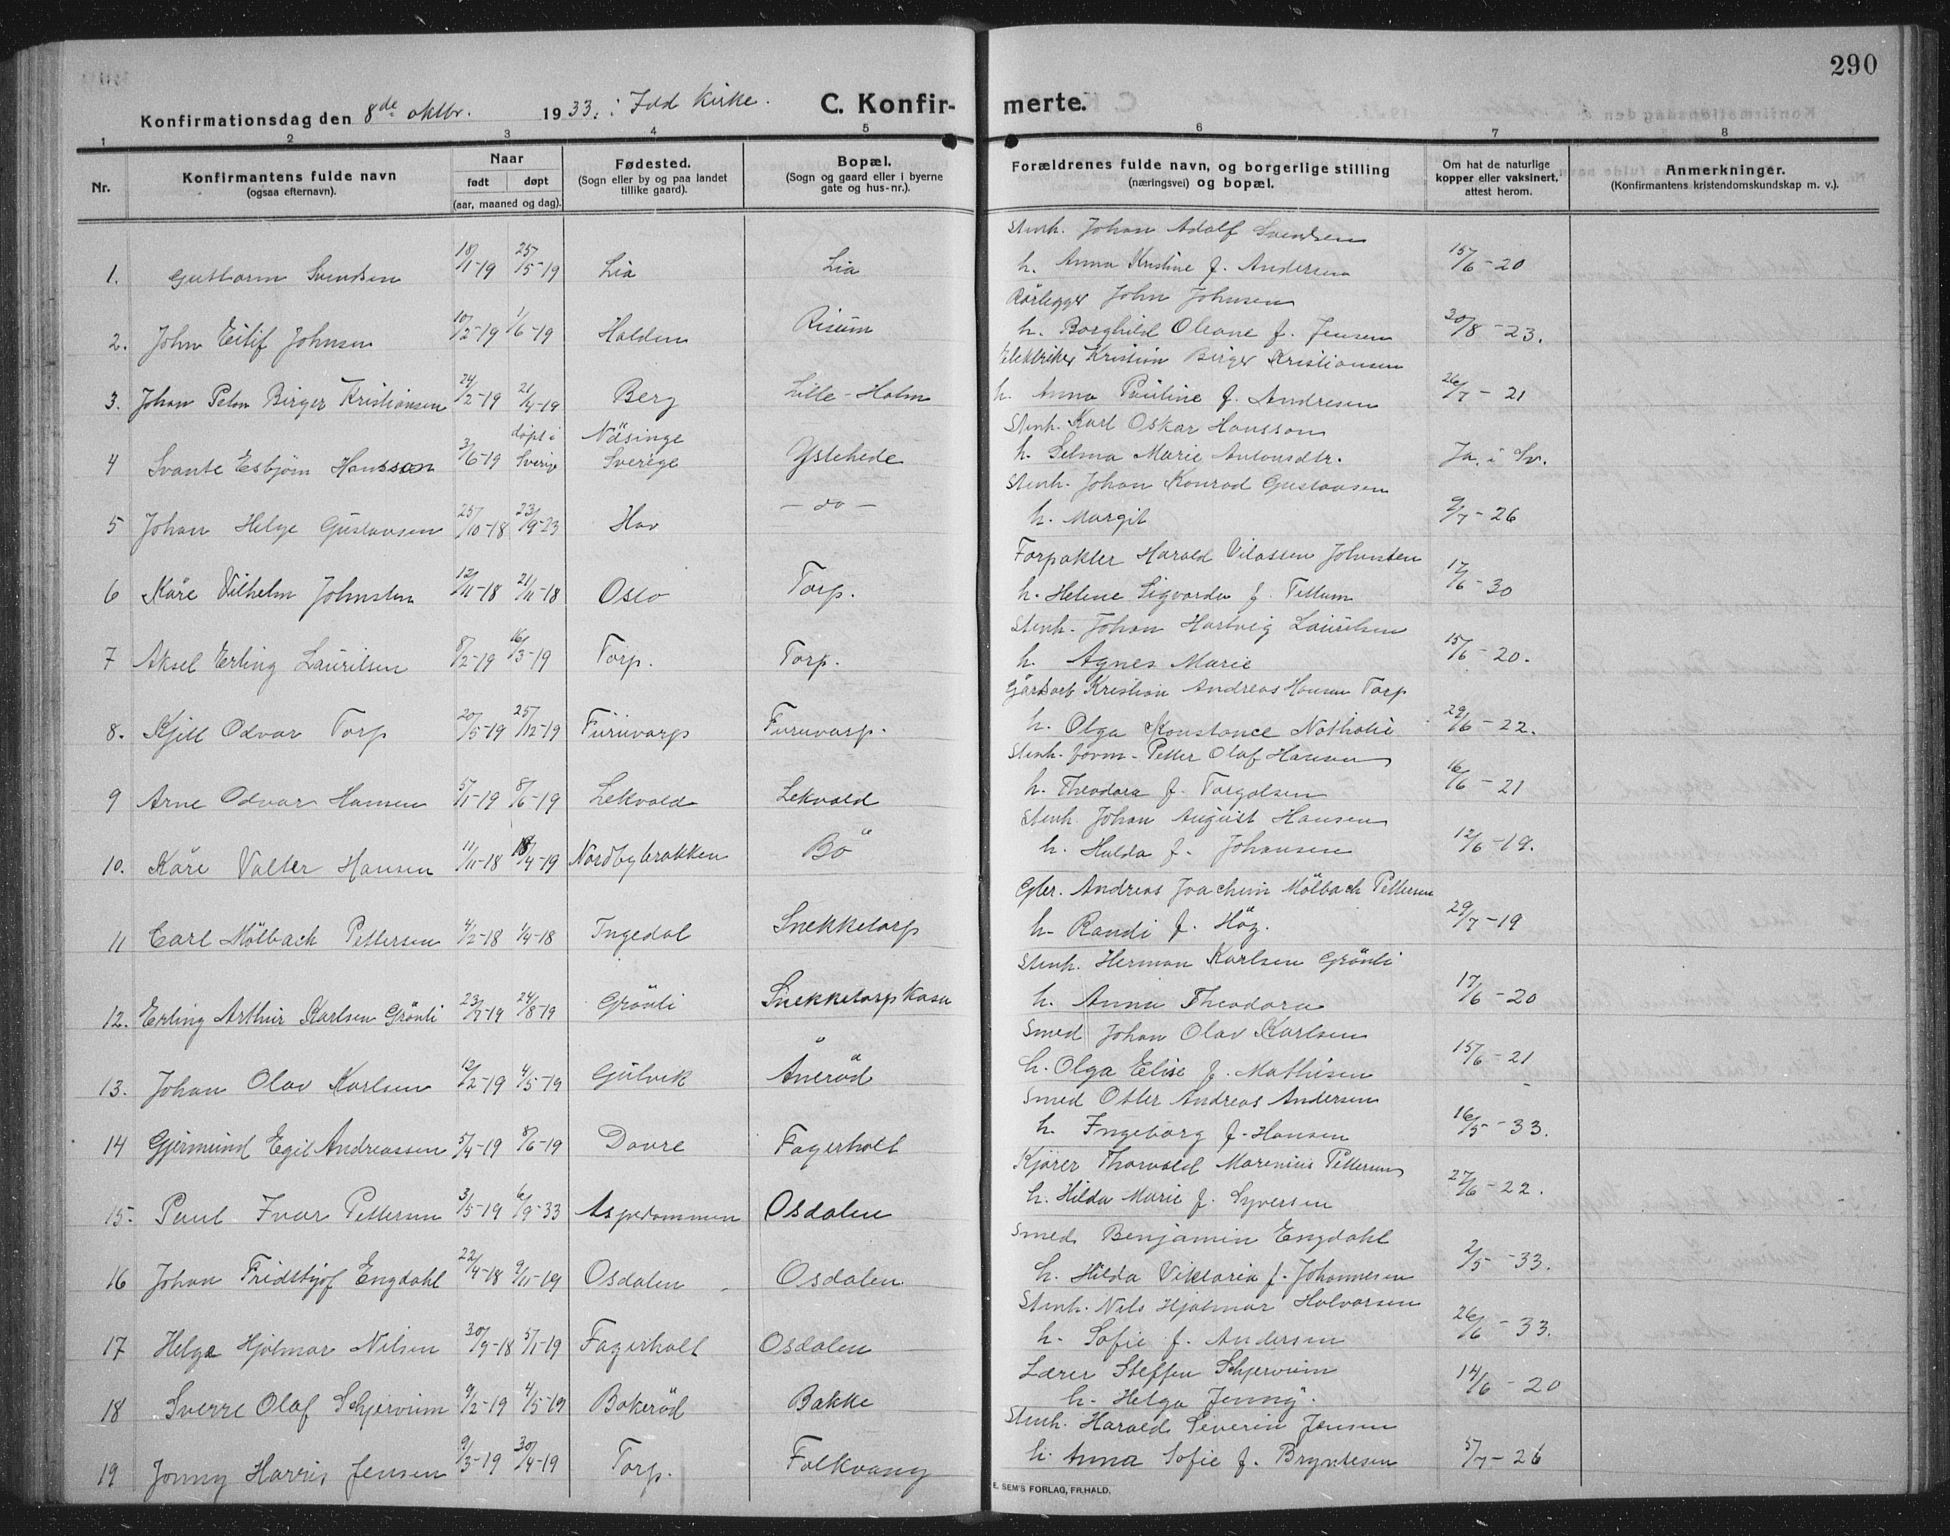 290
Konfirmationsdag den 8de oktbr. 1933. i Idd Kirke. C. Konfirmerte.
1 2 3 4 5 6 7 8
Nr.
Konfirmantens fulde navn
(ogsaa efternavn).
Naar
født døpt
(aar, maaned og dag).
Fødested.
(Sogn eller by og paa landet
tillike gaard).
Bopæl.
(Sogn og gaard eller i byerne
gate og hus-nr.).
Forældrenes fulde navn, og borgerlige stilling
(næringsvei) og bopæl.
Om hat de naturlige
kopper eller vaksinert,
attest herom.
Anmerkninger.
(Konfirmantens kristendomskundskap m. v.).
Stenh. Johan Adolf Svendsen
1. Guttorm Svendsen 18/1-19 25/5-19 Lia Lia h. Anna Kristine f. Andersen 15/6-20
Rørlegger John Johnsen
2. John Eilif Johnsen 10/2-19 1/6-19 Halden Risum h. Borghild Oleane f. Jensen 30/8-23.
Elektriker Kristian Birger Kristiansen
3. Johan Peter Birger Kristiansen 24/2-19 21/4-19 Berg Lille-Holm h. Anna Pauline f. Andresen 26/7-21
Stenh. Karl Oskar Hansson
4 Svante Esbjørn Hansson 3/6-19 døpt i Sverige Näsinge Sverige Ystehede h. Selma Marie Antonsdtr. Ja. i Sv.
Stenh. Johan Konrad Gustavsen
5 Johan Helge Gustavsen 25/10-18 23/9-23 Hov - do - h. Margit 9/7-26
Forpakter Harald Vilassen Johnsten
6 Kåre Vilhelm Johnsten 12/11-18 21/11-18 Oslo Torp. h. Helene Sigvarda f. Tettum 17/6-30
Stenh. Johan Hartvig Lauritsen
7 Aksel Erling Lauritsen 8/2-19 16/3-19 Torp. Torp. h. Agnes Marie 15/6-20.
Gårdarb Kristian Andreas Hansen Torp
8. Kjell Odvar Torp 20/5-19 25/12-19 Furuvarp Furuvarp. h. Olga Konstance Nathalie 29/6-22.
Stenh. form. Petter Olaf Hansen
9 Arne Odvar Hansen 5/1-19 8/6-19 Lekvold Lekvold h. Theodora f. Torgalsen 16/6-21
Stenh. Johan August Hansen
10. Kåre Valter Hansen 11/11-18 18/4-19 Nordbybrakken Bö h. Hulda f. Johansen 12/6-19.
Gbr. Andreas Joachim Mölbach Pettersen
11 Carl Mölbach Pettersen 4/2-18 1/4-18 Ingedal Snekketorp h. Randi f. Hög. 29/7-19
Stenh. Herman Karlsen Grönli
12. Erling Arthur Karlsen Grönli 23/7-19 24/8-19 Grönli Snekketorp Kasa h. Anna Theodora 17/6-20
Smed Johan Olav Karlsen
13. Johan Olav Karlsen 12/2-19 4/5-19 Gulvik Ånerød h. Olga Elise f. Mathisen 15/6-21
Smed Otter Andreas Andersen
14 Gjermund Egil Andreassen 5/4-19 8/6-19 Dovre Fagerholt h. Ingeborg f. Hansen 16/5-33.
Kjører Thorvald Marenius Pettersen
15. Paul Ivar Pettersen 3/5-19 6/9-33 Aspedammen Osdalen h. Hilda Marie f. Syversen 27/6-22.
Smed Benjamin Engdahl
16 Johan Fridthjof Engdahl 22/4-18 9/11-19 Osdalen Osdalen h. Hilda Viktoria f. Johannesen 2/5-33.
Stenh. Nils Hjalmar Halvorsen
17 Helge Hjalmar Nilsen 30/9-18 5/1-19 Fagerholt Osdalen h. Sofie f. Andersen 26/6-33.
Lærer Steffen Schjervum
18 Sverre Olaf Schjervum 9/2-19 4/5-19 Bakerød Bakke h. Helga Jenny. 14/6-20
Stenh. Harald Severin Jensen
19 Jonny Harris Jensen 9/3-19 30/4-19 Torp. Folkvang h. Anna Sofie f. Bryntesen 5/7-26
E. SEM'S FORLAG, FR.HALD.